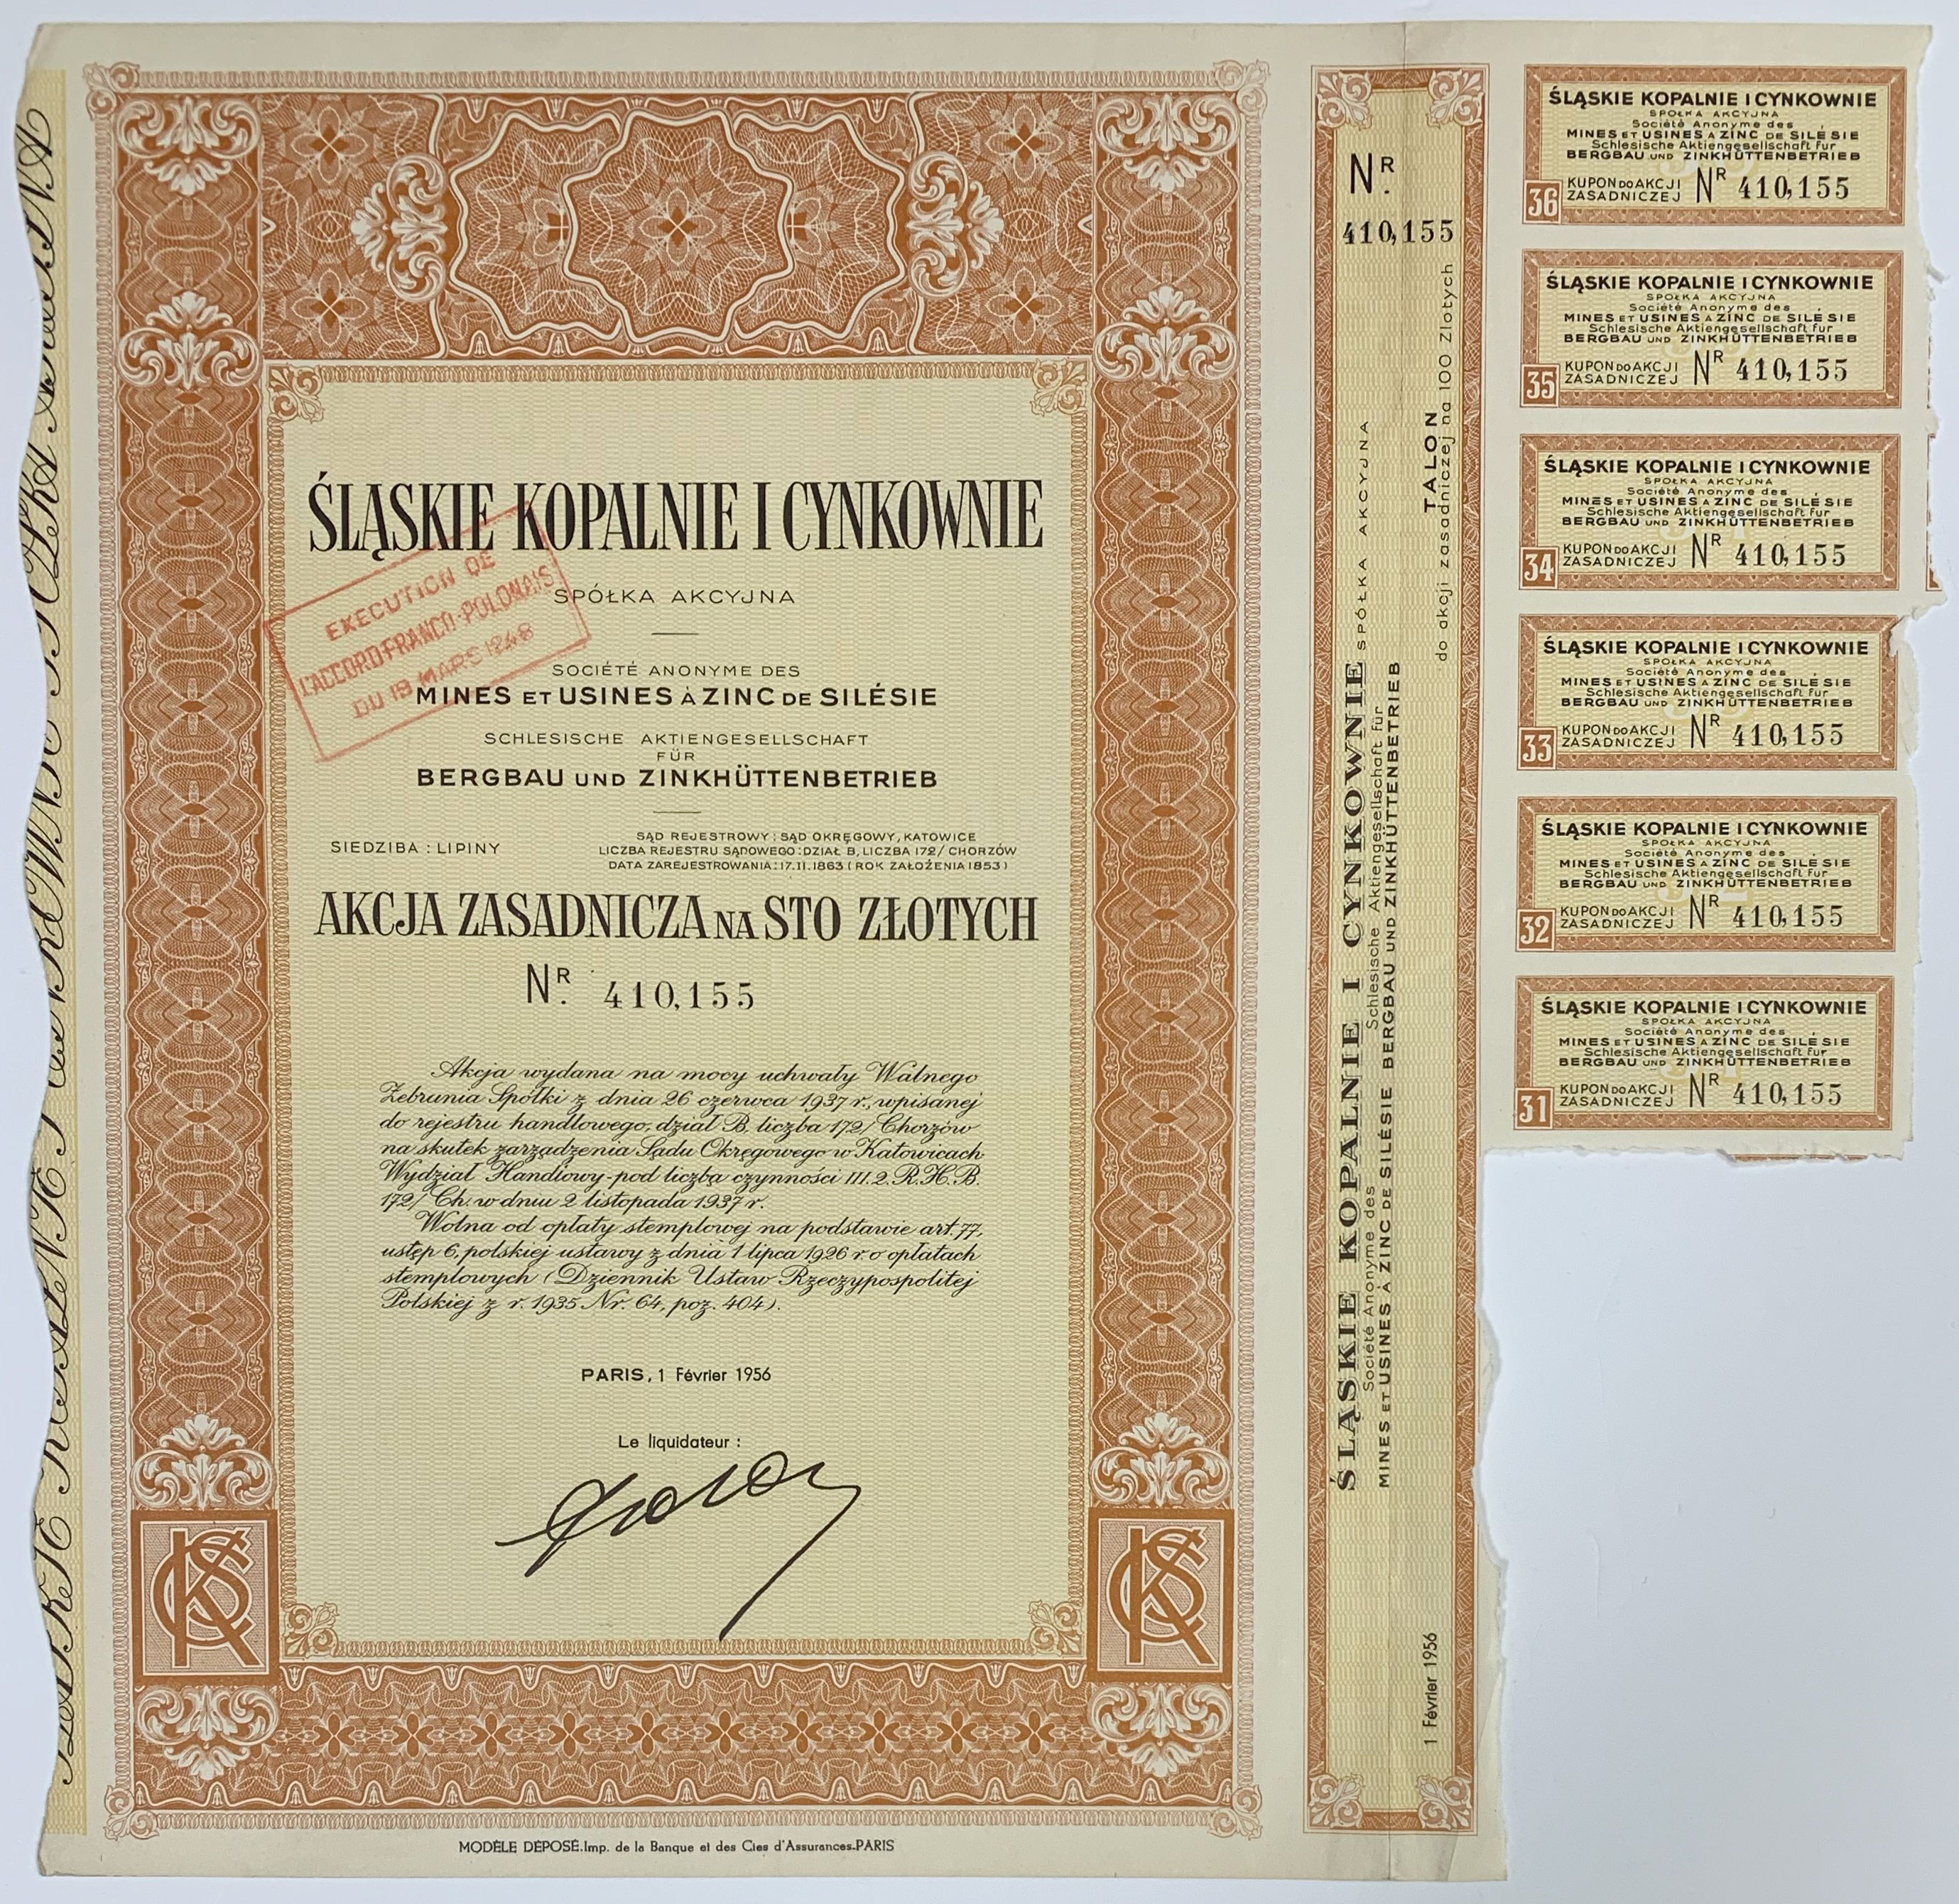 ŚLĄSKIE KOPALNIE I CYNKOWNIE
SPÓŁKA AKCYJNA
EXECUTION DE
L'ACCORD FRANCO-POLONAIS
DU 19 MARS 1948
SOCIÉTÉ ANONYME DES
MINES ET USINES À ZINC DE SILÉSIE
SCHLESISCHE AKTIENGESELLSCHAFT
FÜR
BERGBAU UND ZINKHÜTTENBETRIEB
SIEDZIBA : LIPINY
SĄD REJESTROWY : SĄD OKRĘGOWY, KATOWICE
LICZBA REJESTRU SĄDOWEGO : DZIAŁ B, LICZBA 172 / CHORZÓW
DATA ZAREJESTROWANIA : 17.11.1863 ( ROK ZAŁOŻENIA 1853 )
AKCJA ZASADNICZA NA STO ZŁOTYCH
NR. 410,155
Akcja wydana na mocy uchwały Walnego
Zebrania Spółki z dnia 26 czerwca 1937 r., wpisanej
do rejestru handlowego, dział B. liczba 172/ Chorzów
na skutek zarządzenia Sądu Okręgowego w Katowicach
Wydział Handlowy-pod liczbą czynności III. 2. R.H.B.
172/ Ch. w dniu 2 listopada 1937 r.
Wolna od opłaty stemplowej na podstawie art. 77,
ustęp 6, polskiej ustawy z dnia 1 lipca 1926 r. o opłatach
stemplowych ( Dziennik Ustaw Rzeczypospolitej
Polskiej z r. 1935 Nr. 64, poz. 404 ).
PARIS, 1 Février 1956
Le liquidateur :
MODÈLE DÉPOSÉ. Imp. de la Banque et des Cies d'Assurances-PARIS
NR.
410,155
ŚLĄSKIE KOPALNIE I CYNKOWNIE SPÓŁKA AKCYJNA
Société Anonyme des Schlesische Aktiengesellschaft für
MINES ET USINES À ZINC DE SILÉSIE BERGBAU UND ZINKHÜTTENBETRIEB
TALON
do akcji zasadniczej na 100 Złotych
1 Février 1956
ŚLĄSKIE KOPALNIE I CYNKOWNIE
SPÓŁKA AKCYJNA
Société Anonyme des
MINES ET USINES À ZINC DE SILÉSIE
Schlesische Aktiengesellschaft für
BERGBAU UND ZINKHÜTTENBETRIEB
36 KUPON DO AKCJI ZASADNICZEJ NR 410,155
ŚLĄSKIE KOPALNIE I CYNKOWNIE
SPÓŁKA AKCYJNA
Société Anonyme des
MINES ET USINES À ZINC DE SILÉSIE
Schlesische Aktiengesellschaft für
BERGBAU UND ZINKHÜTTENBETRIEB
35 KUPON DO AKCJI ZASADNICZEJ NR 410,155
ŚLĄSKIE KOPALNIE I CYNKOWNIE
SPÓŁKA AKCYJNA
Société Anonyme des
MINES ET USINES À ZINC DE SILÉSIE
Schlesische Aktiengesellschaft für
BERGBAU UND ZINKHÜTTENBETRIEB
34 KUPON DO AKCJI ZASADNICZEJ NR 410,155
ŚLĄSKIE KOPALNIE I CYNKOWNIE
SPÓŁKA AKCYJNA
Société Anonyme des
MINES ET USINES À ZINC DE SILÉSIE
Schlesische Aktiengesellschaft für
BERGBAU UND ZINKHÜTTENBETRIEB
33 KUPON DO AKCJI ZASADNICZEJ NR 410,155
ŚLĄSKIE KOPALNIE I CYNKOWNIE
SPÓŁKA AKCYJNA
Société Anonyme des
MINES ET USINES À ZINC DE SILÉSIE
Schlesische Aktiengesellschaft für
BERGBAU UND ZINKHÜTTENBETRIEB
32 KUPON DO AKCJI ZASADNICZEJ NR 410,155
ŚLĄSKIE KOPALNIE I CYNKOWNIE
SPÓŁKA AKCYJNA
Société Anonyme des
MINES ET USINES À ZINC DE SILÉSIE
Schlesische Aktiengesellschaft für
BERGBAU UND ZINKHÜTTENBETRIEB
31 KUPON DO AKCJI ZASADNICZEJ NR 410,155